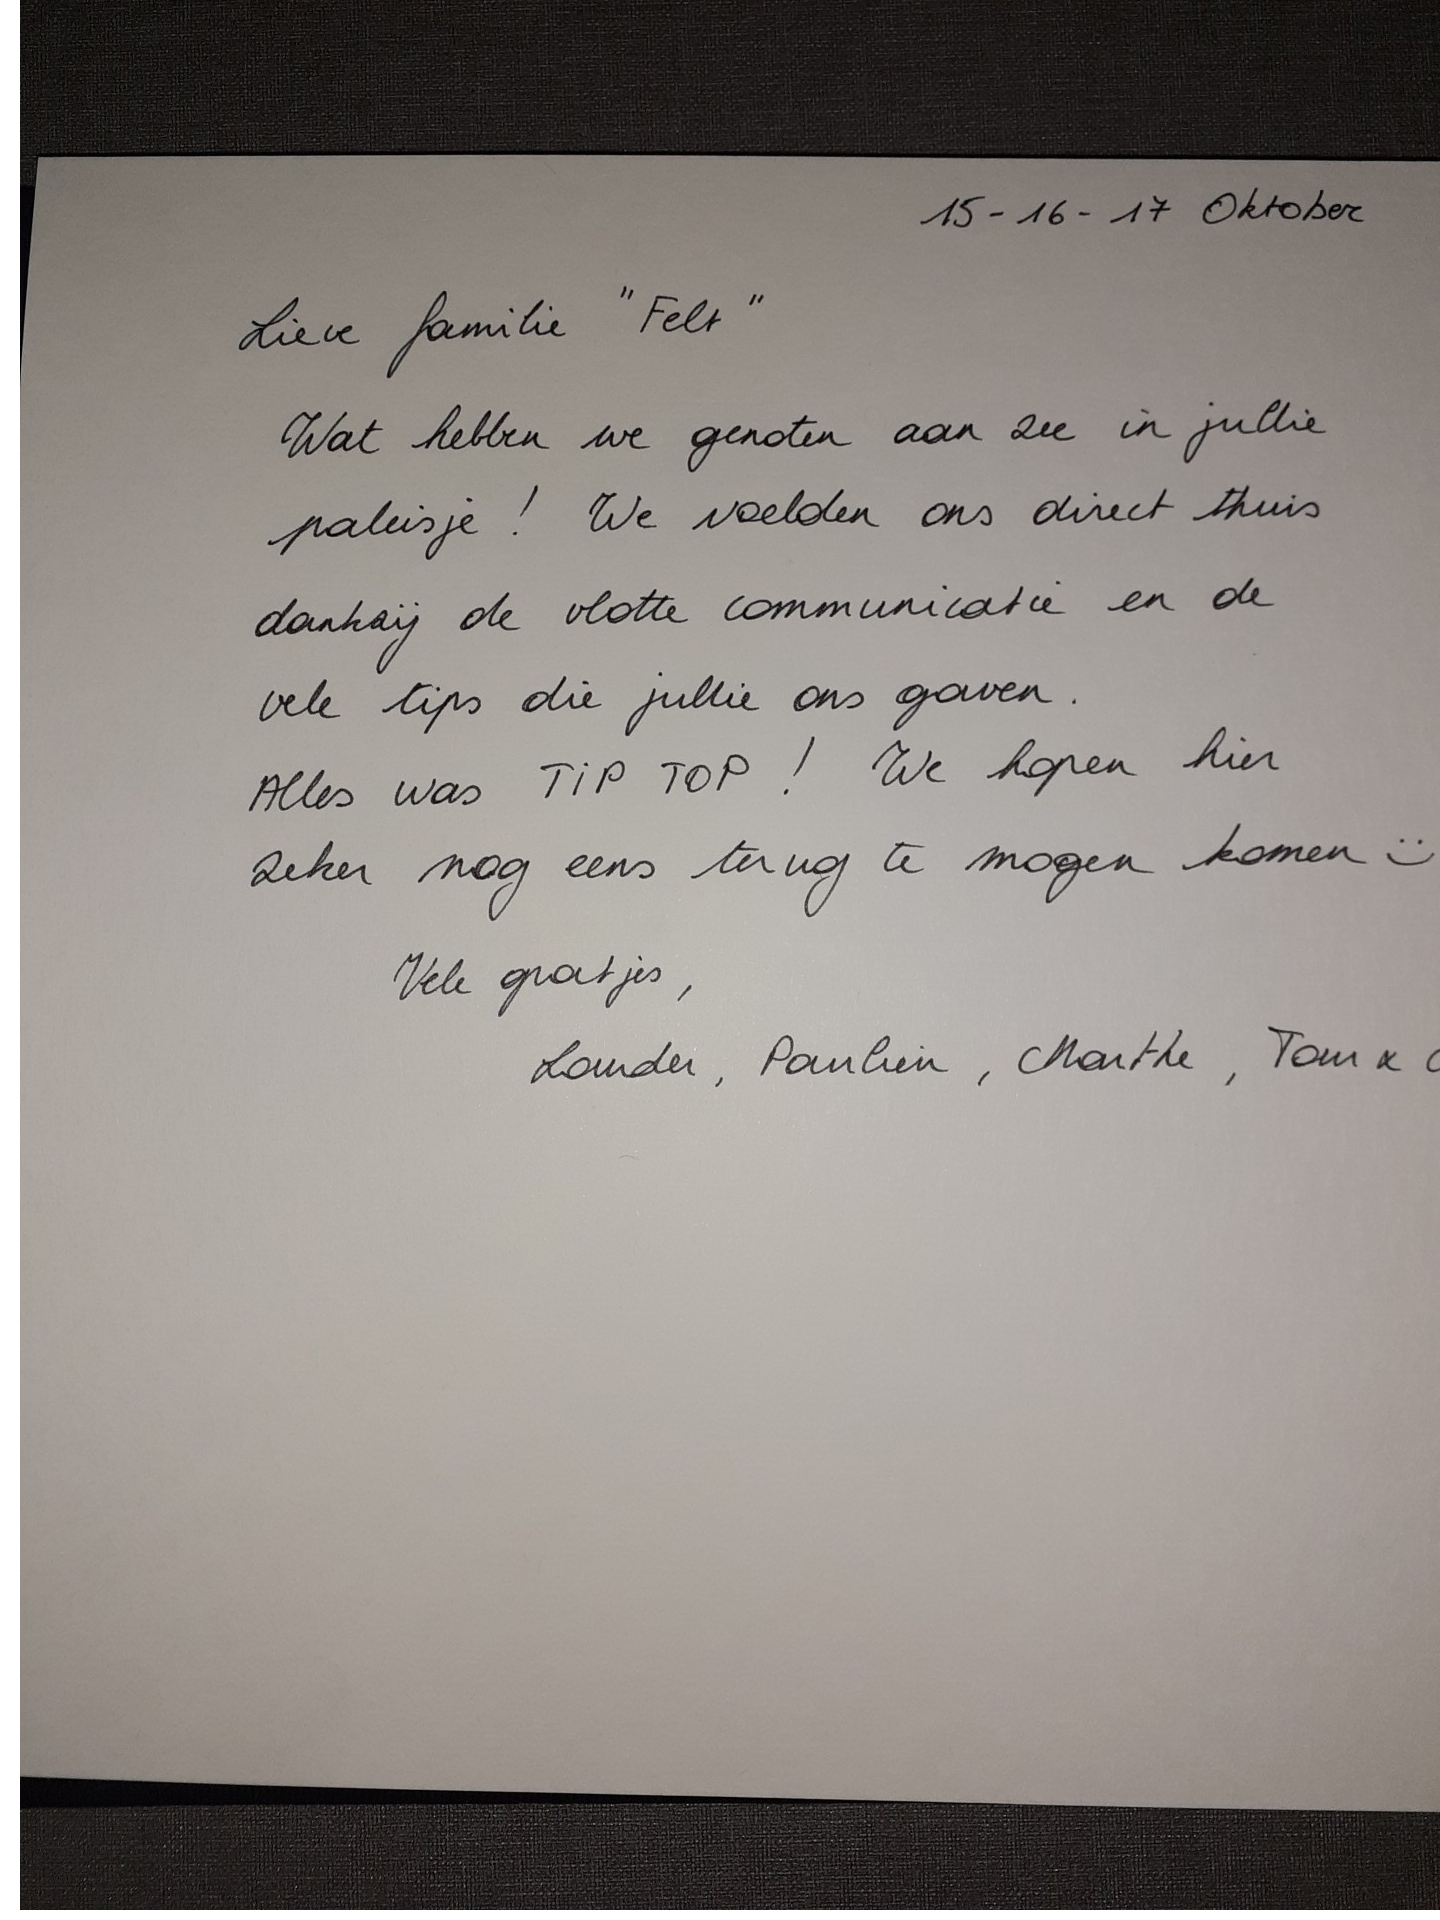 15-16-17 Oktober
Lieve familie "Felt"
Wat hebben we genoten aan zee in jullie
paleisje! We voelden ons direct thuis
dankzij de vlotte communicatie en de
vele tips die jullie ons gaven.
Alles was TiP TOP! We hopen hier
zeker nog eens terug te mogen komen :)
Vele groetjes,
Lander, Paulien, Marthe, Tom &